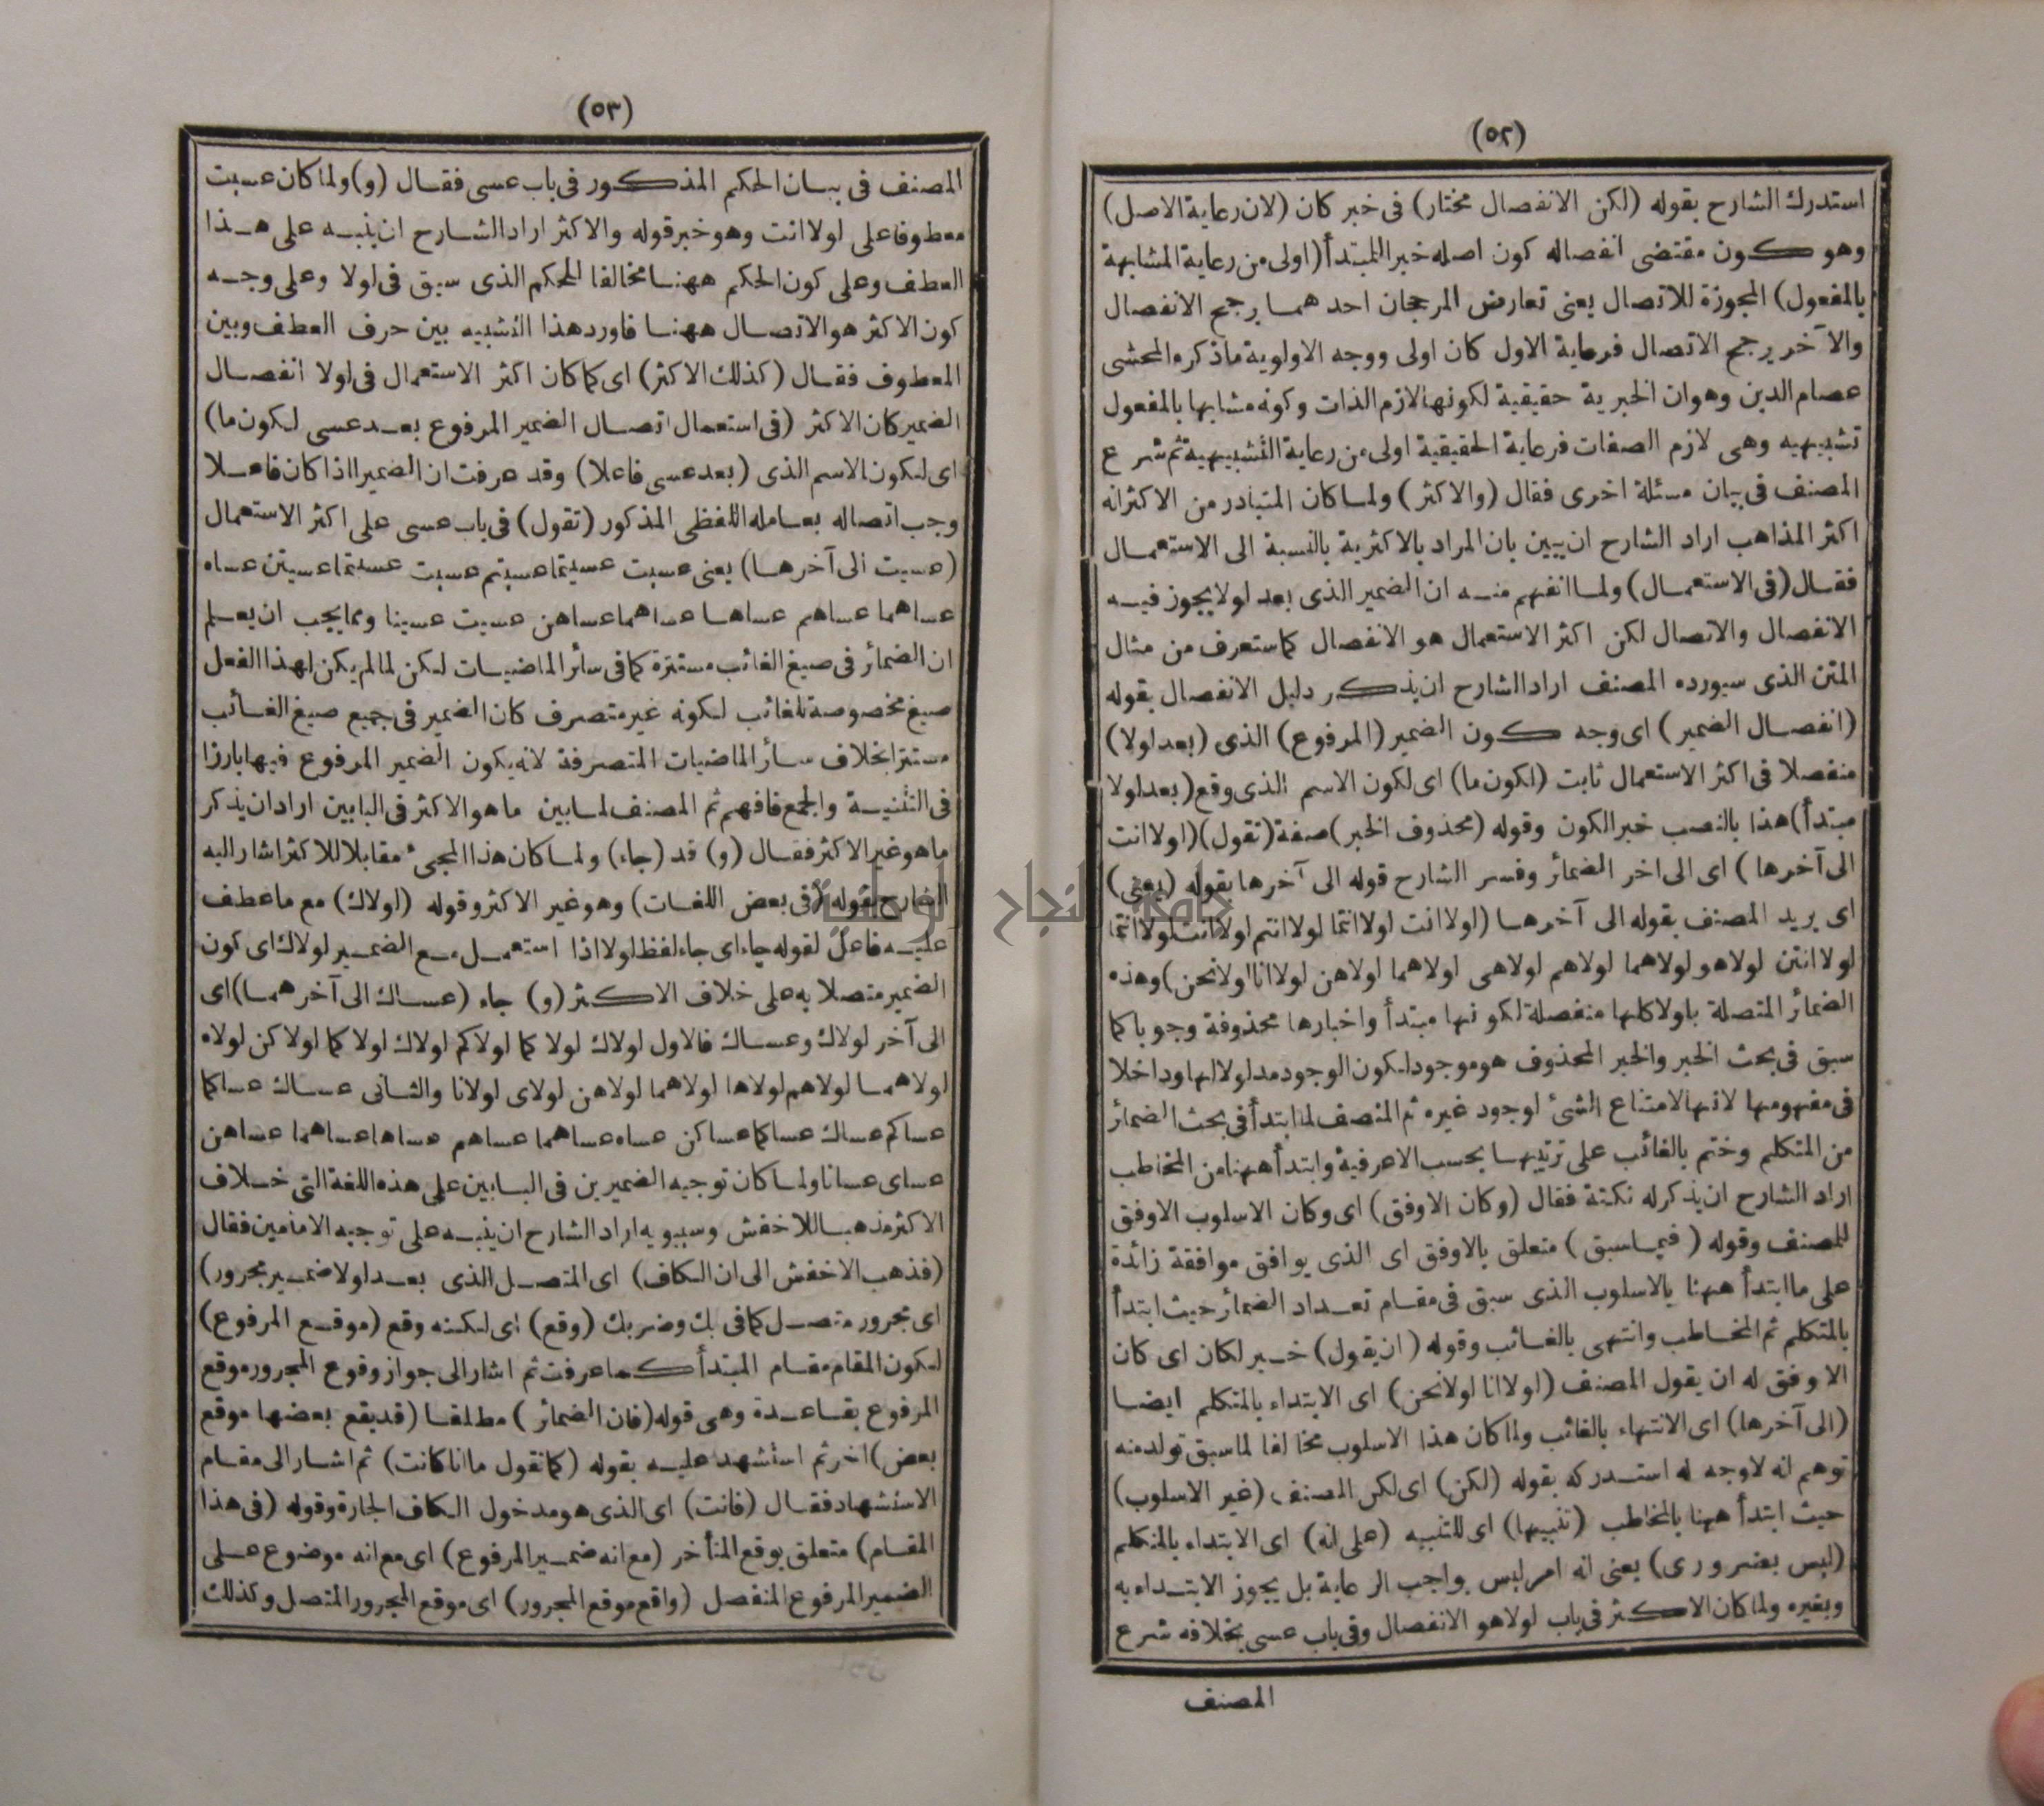 (٥٢)
استدرك الشارح بقوله (لكن الانفصال مختار) فى خبر كان (لان رعاية الاصل)
وهو كون مقتضى انفصاله كون اصله خبر المبتدأ (اولى من رعاية المشابهة
بالمفعول) المجوزة للاتصال يعنى تعارض المرجحان احدهما يرجح الانفصال
والآخر يرجح الاتصال فرعاية الاول كان اولى ووجه الاولوية ماذكره المحشى
عصام الدين وهو ان الخبرية حقيقية لكونها لازم الذات وكونه مشابها بالمفعول
تشبيهيه وهى لازم الصفات فرعاية الحقيقية اولى من رعاية التشبيهية ثم شرع
المصنف فى بيان مسئلة اخرى فقال (والاكثر) ولما كان المتبادر من الاكثر انه
اكثر المذاهب اراد الشارح ان يبين بان المراد بالاكثرية بالنسبة الى الاستعمال
فقال (فى الاستعمال) ولما انفهم منه ان الضمير الذى بعد لولا يجوز فيه
الانفصال والاتصال لكن اكثر الاستعمال هو الانفصال كما ستعرف من مثال
المتن الذى سيورده المصنف اراد الشارح ان يذكر دليل الانفصال بقوله
(انفصال الضمير) اى وجه كون الضمير (المرفوع) الذى (بعد لولا)
منفصلا فى اكثر الاستعمال ثابت (لكون ما) اى لكون الاسم الذى وقع (بعد لولا
مبتدأ) هذا بالنصب خبر الكون وقوله (محذوف الخبر) صفة (تقول) (لولا انت
الى آخرها) اى الى اخر الضمائر وفسر الشارح قوله الى آخرها بقوله (يعنى)
اى يريد المصنف بقوله الى آخرها (لولا انت لولا انتما لولا انتم لولا انت لولا انتما
لولا انتن لولا هو لولا هما لولاهم لولاهى لولاهما لولاهن لولا انا لولا نحن) وهذه
الضمائر المتصلة بلولا كلها منفصلة لكونها مبتدأ واخبارها محذوفة وجوبا كما
سبق فى بحث الخبر والخبر المحذوف هو موجود لكون الوجود مدلولا لها وداخلا
فى مفهومها لانها لامتناع الشئ لوجود غيره ثم المنصف لما ابتدأ فى بحث الضمائر
من المتكلم وختم بالغائب على ترتيبها بحسب الاعرفية وابتدأ ههنا من المخاطب
اراد الشارح ان يذكر له نكتة فقال (وكان الاوفق) اى وكان الاسلوب الاوفق
للمصنف وقوله (فيما سبق) متعلق بالاوفق اى الذى يوافق موافقة زائدة
على ما ابتدأ ههنا بالاسلوب الذى سبق فى مقام تعداد الضمائر حيث ابتدأ
بالمتكلم ثم المخاطب وانتهى بالغائب وقوله (ان يقول) خبر لكان اى كان
الاوفق له ان يقول المصنف (لولا انا لولا نحن) اى الابتداء بالمتكلم ايضا
(الى آخرها) اى الانتهاء بالغائب ولما كان هذا الاسلوب مخالفا لما سبق تولد منه
توهم انه لاوجه له استدركه بقوله (لكن) اى لكن المصنف (غير الاسلوب)
حيث ابتدأ ههنا بالمخاطب (تنبيها) اى للتنبيه (على انه) اى الابتداء بالمتكلم
(ليس بضرورى) يعنى انه امر ليس بواجب الرعاية بل يجوز الابتداء به
وبغيره ولما كان الاكثر فى باب لولا هو الانفصال وفى باب عسى بخلافه شرع
المصنف
(٥٣)
المصنف فى بيان الحكم المذكور فى باب عسى فقال (و) ولما كان عسيت
معطوفا على لولا انت وهو خبر قوله والاكثر اراد الشارح ان ينبه على هذا
العطف وعلى كون الحكم ههنا مخالفا للحكم الذى سبق فى لولا وعلى وجه
كون الاكثر هو الاتصال ههنا فاورد هذا التشبيه بين حرف العطف وبين
المعطوف فقال (كذلك الاكثر) اى كما كان اكثر الاستعمال فى لولا انفصال
الضمير كان الاكثر (فى استعمال اتصال الضمير المرفوع بعد عسى لكون ما)
اى لكون الاسم الذى (بعد عسى فاعلا) وقد عرفت ان الضمير ااذا كان فاعلا
وجب اتصاله بعامله اللفظى المذكور (تقول) فى باب عسى على اكثر الاستعمال
(عسيت الى آخرها) يعنى عسيت عسيتما عسيتم عسيت عسيتما عسيتن عساه
عساهما عساهم عساها عساهما عساهن عسيت عسينا ومما يجب ان يعلم
ان الضمائر فى صيغ الغائب مستترة كما فى سائر الماضيات لكن لما لم يكن لهذا الفعل
صيغ مخصوصة للغائب لكونه غير متصرف كان الضمير فى جميع صيغ الغائب
مستترا بخلاف سائر الماضيات المتصرفة لانه يكون الضمير المرفوع فيها بارزا
فى التثنية والجمع فافهم ثم المصنف لما بين ما هو الاكثر فى البابين اراد ان يذكر
ما هو غير الاكثر فقال (و) قد (جاء) ولما كان هذا المجئ مقابلا للاكثر اشار اليه
الشارح بقوله (فى بعض اللغات) وهو غير الاكثر وقوله (لولاك) مع ما عطف
عليه فاعل لقوله جاء اى جاء لفظ لولا اذا استعمل مع الضمير لولاك اى كون
الضمير متصلا به على خلاف الاكثر (و) جاء (عساك الى آخرهما) اى
الى آخر لولاك وعساك فالاول لولاك لولا كما لولاكم لولاك لولا كما لولا كن لولاه
لولاهما لولاهم لولاها لولاهما لولاهن لولاى لولانا والثانى عساك عساكما
عساكم عساك عساكما عساكن عساه عساهما عساهم عساها عساهما عساهن
عساى عسانا ولما كان توجيه الضميرين فى البابين على هذه اللغة التى خلاف
الاكثر مذهبا للاخفش وسيبويه اراد الشارح ان ينبه على توجيه الامامين فقال
(فذهب الاخفش الى ان الكاف) اى المتصل الذى بعد لولا ضمير مجرور)
اى مجرور متصل كما فى بك وضربك (وقع) اى لكنه وقع (موقع المرفوع)
لكون المقام مقام المبتدأ كما عرفت ثم اشار الى جواز وقوع المجرور موقع
المرفوع بقاعدة وهى قوله (فان الضمائر) مطلقا (قد يقع بعضها موقع
بعض) اخر ثم استشهد عليه بقوله (كما تقول ما انا كانت) ثم اشار الى مقام
الاستشهاد فقال (فانت) اى الذى هو مدخول الكاف الجارة وقوله (فى هذا
المقام) متعلق بوقع المتأخر (مع انه ضمير المرفوع) اى مع انه موضوع على
الضمير المرفوع المنفصل (واقع موقع المجرور) اى موقع المجرور المتصل وكذلك
جامعة النجاح الوطنية